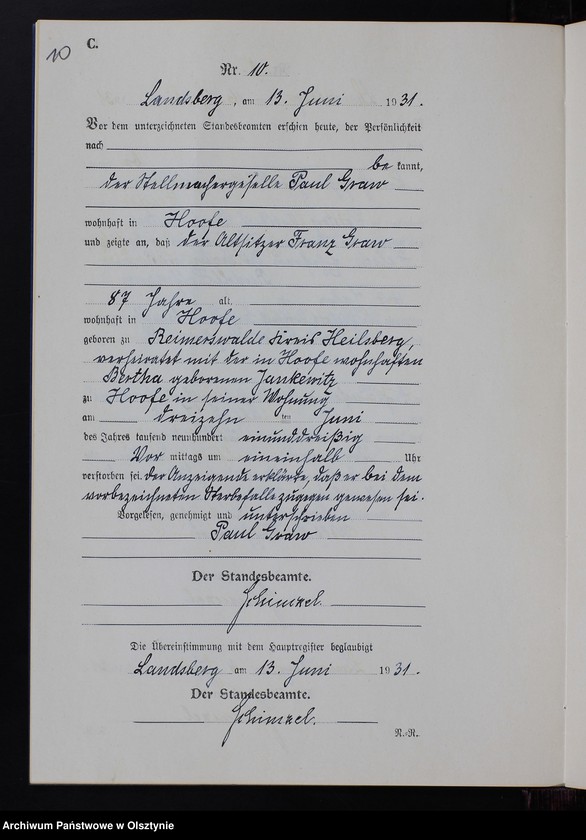 10
C.
Nr. 10.
Landsberg, am 13. Juni 1931.
Vor dem unterzeichneten Standesbeamten erschien heute, der Persönlichkeit
nach
bekannt,
der Stellmachergeselle Paul Graw
wohnhaft in Hoofe
und zeigte an, daß der Altsitzer Franz Graw
87 Jahre alt,
wohnhaft in Hoofe
geboren zu Reimerswalde Kreis Heilsberg,
verheiratet mit der in Hoofe wohnhaften
Bertha geborenen Jankewitz
zu Hoofe in seiner Wohnung
am dreizehn ten Juni
des Jahres tausend neunhundert einunddreißig
Vor mittags um eineinhalb Uhr
verstorben sei. der Anzeigende erklärte, daß er bei dem
vorbezeichneten Sterbefalle zugegen gewesen sei.
Vorgelesen, genehmigt und unterschrieben
Paul Graw
Der Standesbeamte.
Schinkel.
Die Übereinstimmung mit dem Hauptregister beglaubigt
Landsberg am 13. Juni 1931.
Der Standesbeamte.
Schinkel.
N.-R.
Archiwum Państwowe w Olsztynie